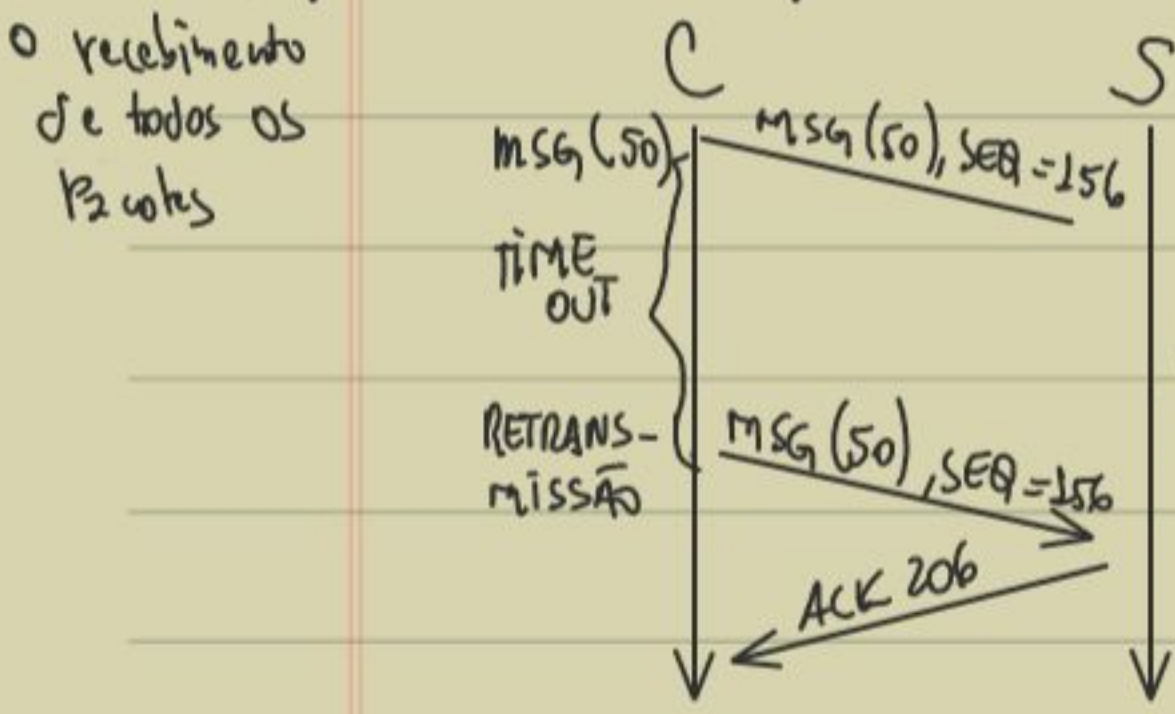 o recebimento
de todos os
Pacotes
C
S
MSG(50)
MSG(50), SEQ=156
TIME
OUT
RETRANS-
MISSÃO
MSG(50), SEQ=156
ACK 206